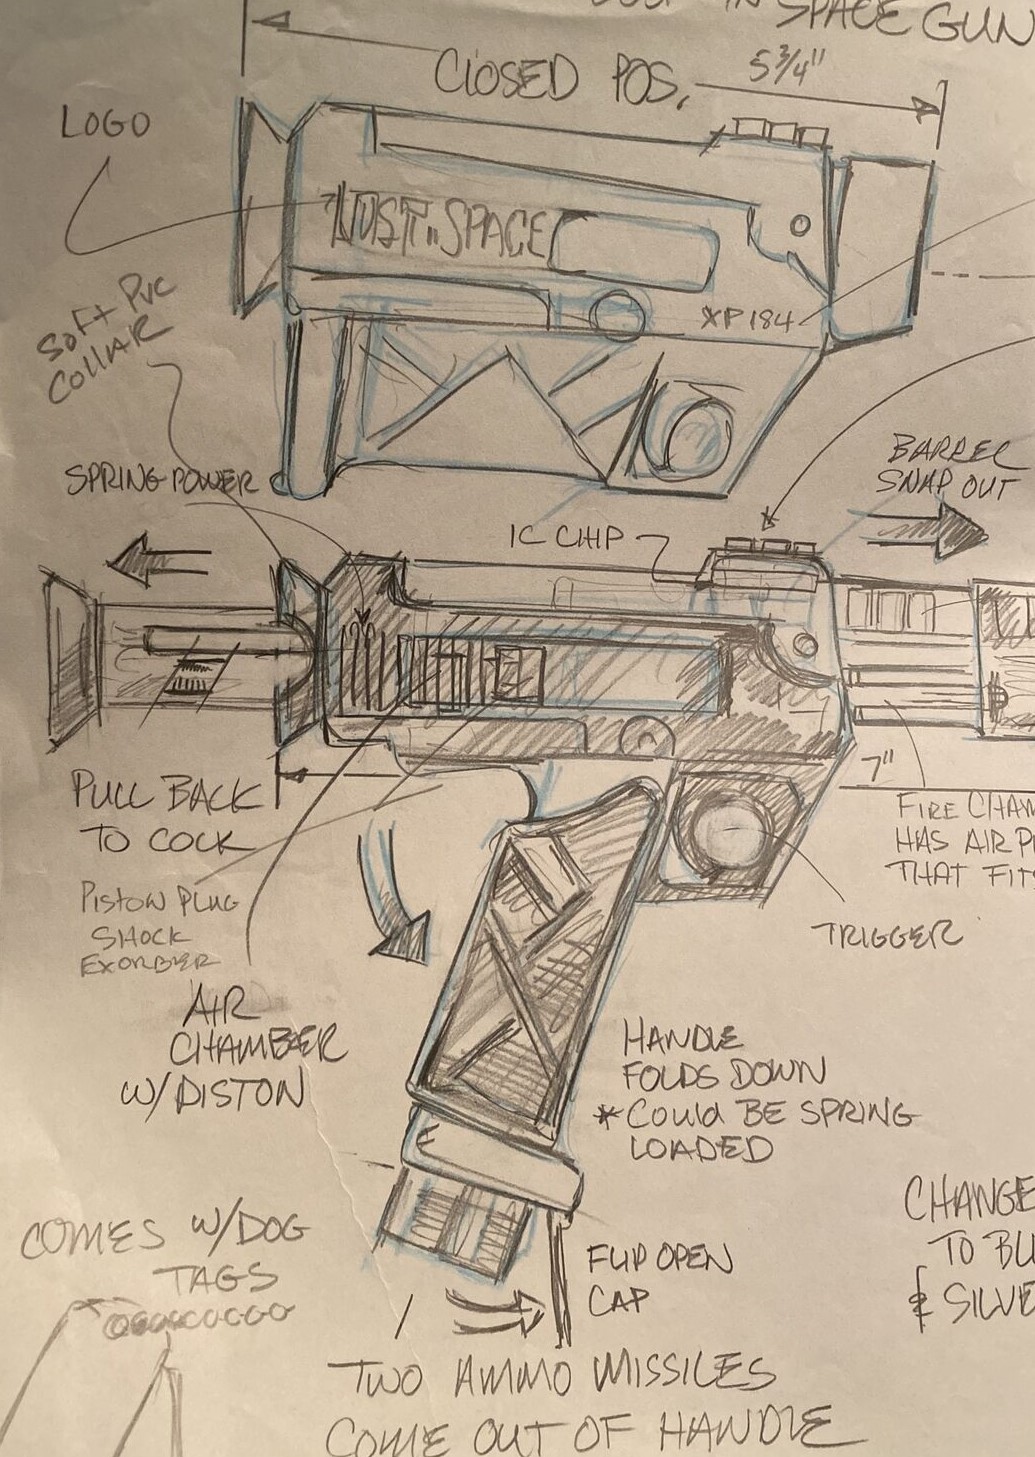 IN SPACE GUN
CLOSED POS. 5 3/4"
LOGO
LOST IN SPACE
XP184
SOFT PVC
COLLAR
SPRING POWER
BARREL
SNAP OUT
IC CHIP
PULL BACK
TO COCK
7"
FIRE CHAM
HAS AIR PI
THAT FITS
PISTON PLUG
SHOCK
EXORBER
TRIGGER
AIR
CHAMBER
W/DISTON
HANDLE
FOLDS DOWN
*COULD BE SPRING
LOADED
CHANGE
TO BLU
& SILVE
COMES W/DOG
TAGS
FLIP OPEN
CAP
TWO AMMO MISSILES
COME OUT OF HANDLE